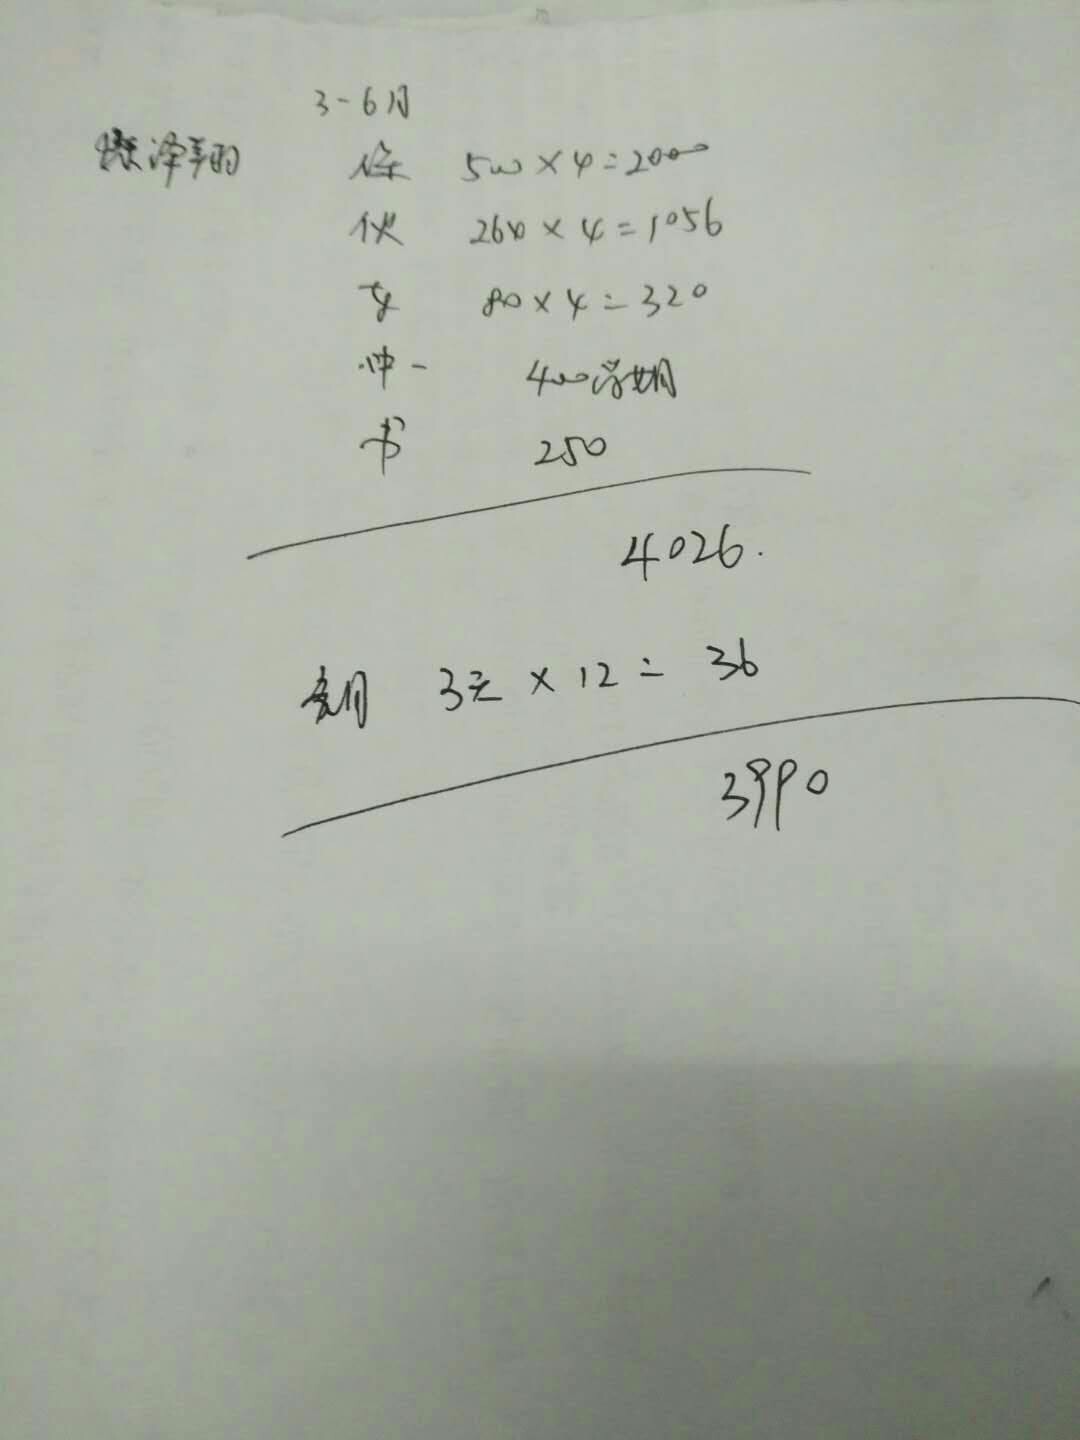 3-6月
泽翔 保 500×4=2000
伙 264×4=1056
80×4=320
冲一 400学期
书 250
4026.
3天×12=36
3990